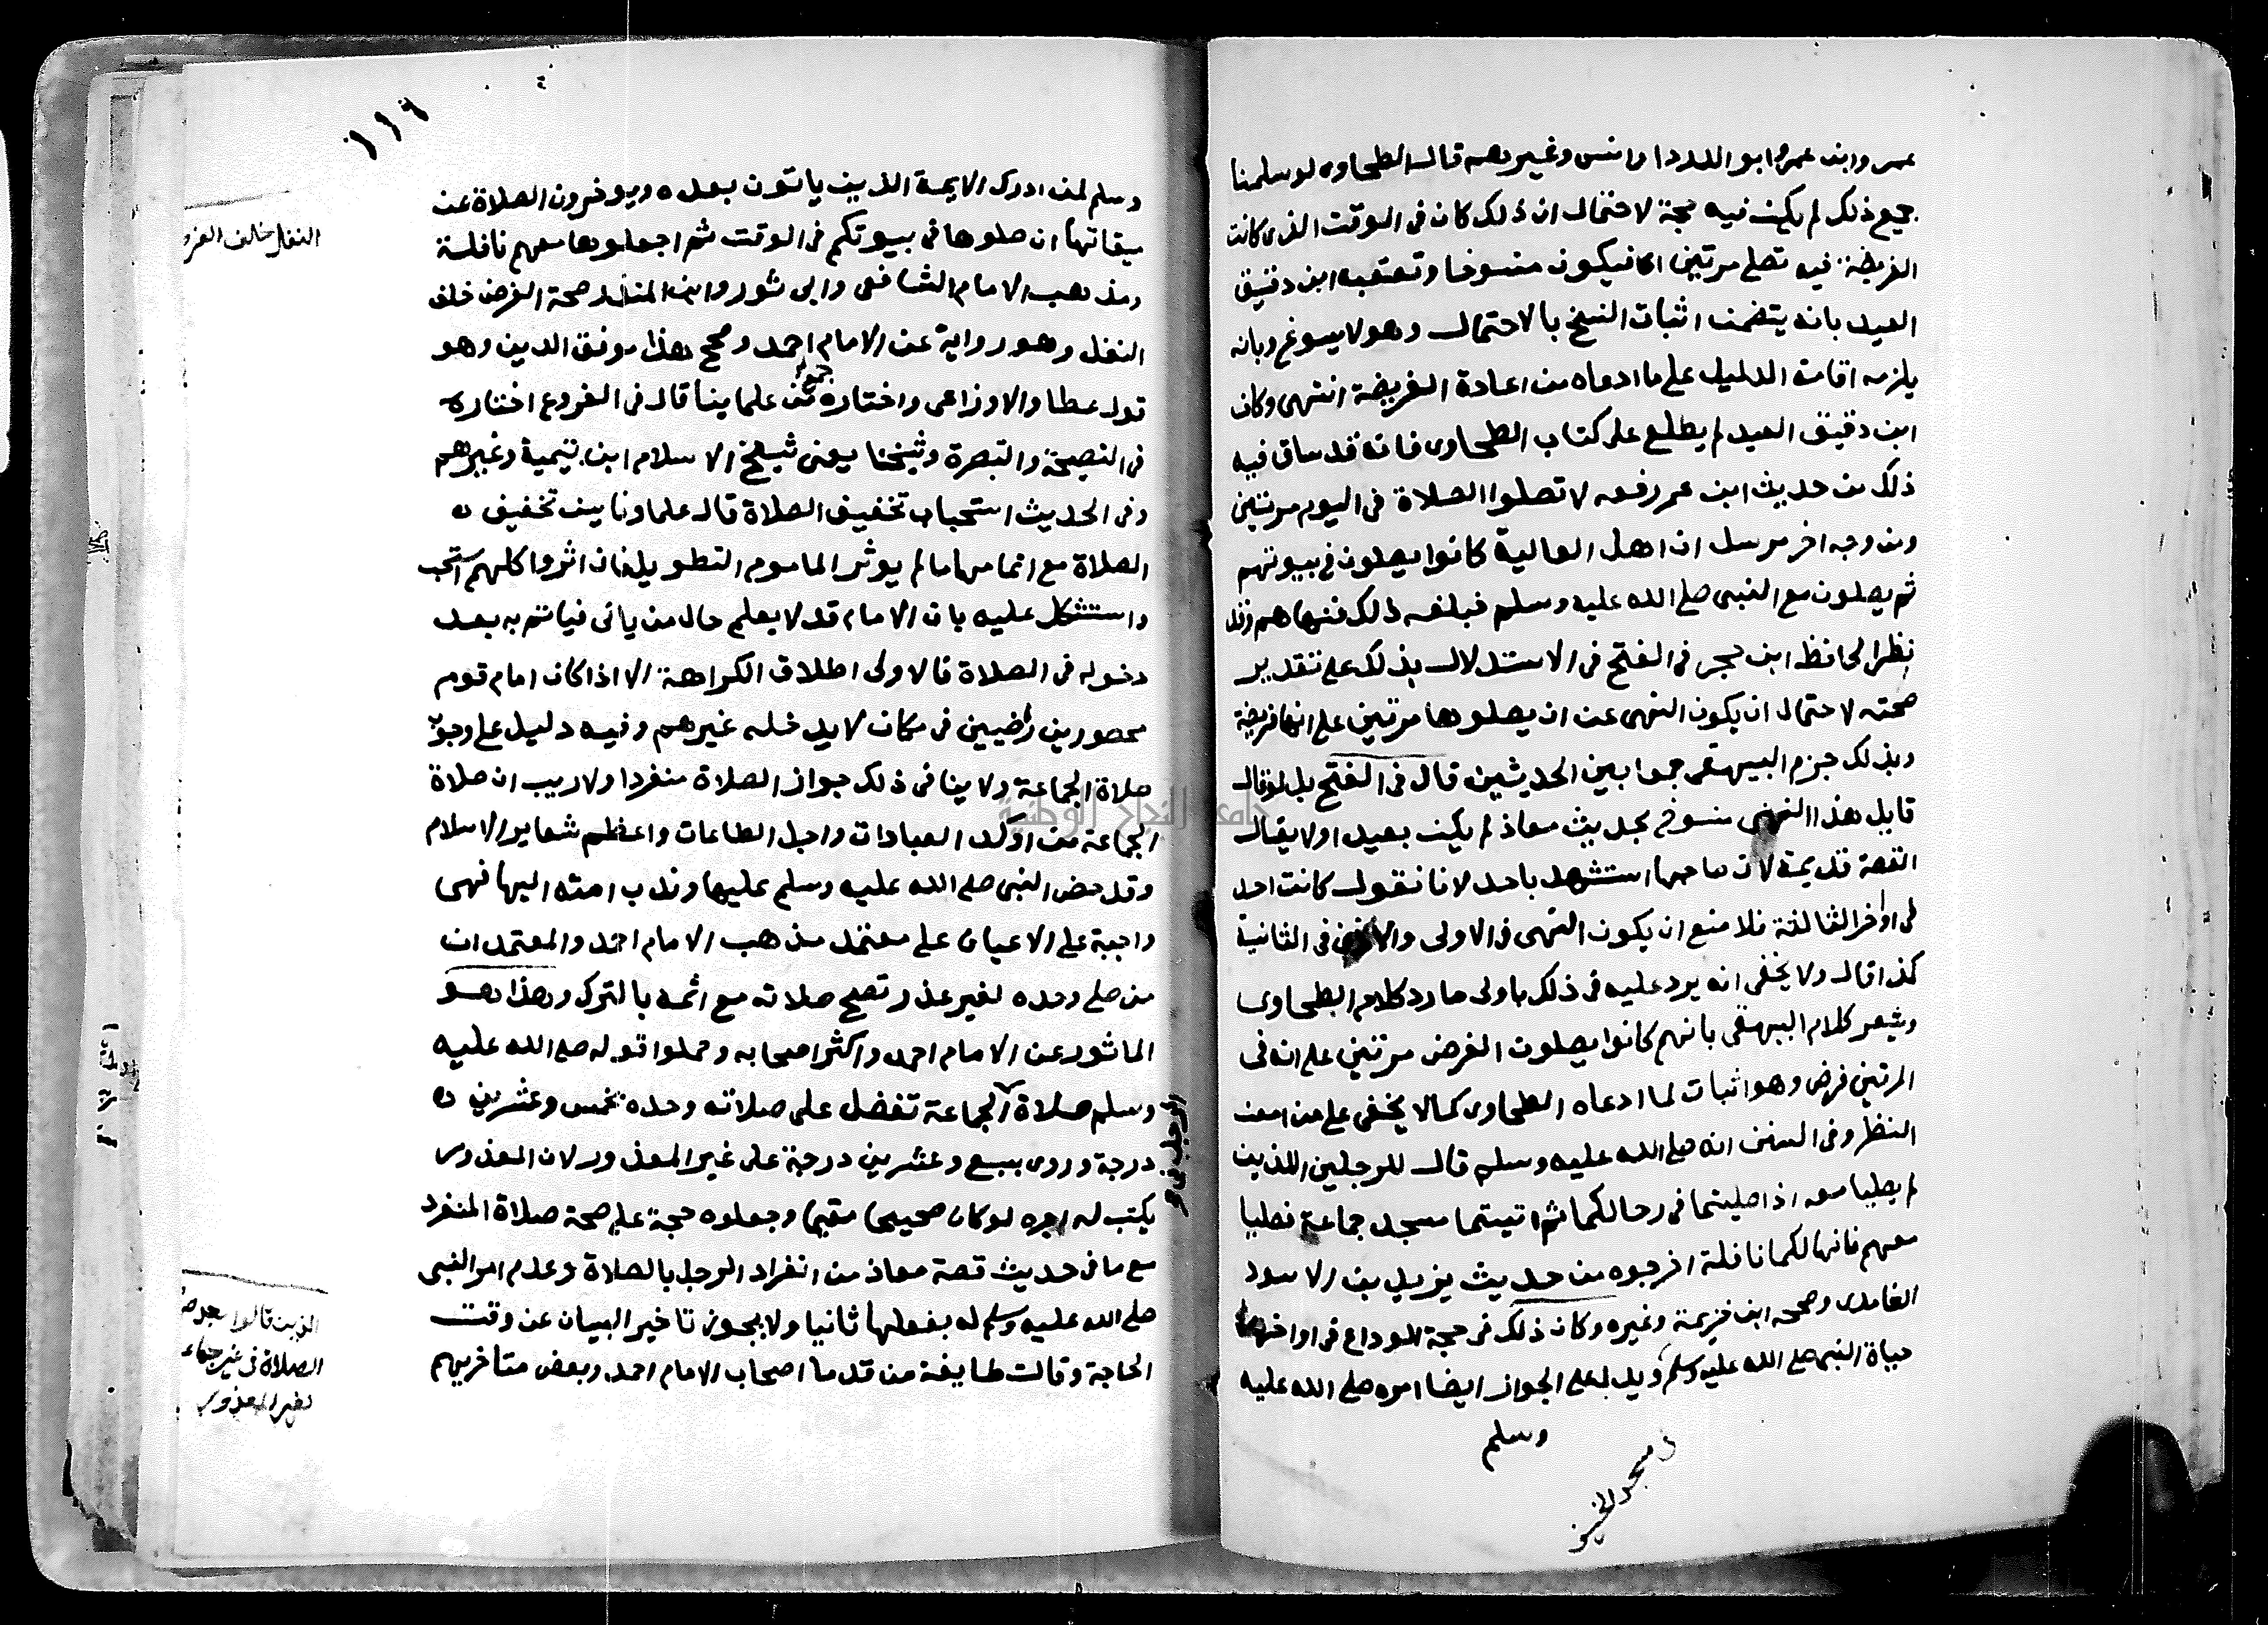 عمر وابن عمر وابو الدردا وانس وغيرهم قال الطحاوي لو سلمنا
جميع ذلك لم يكن فيه حجة لاحتمال ان ذلك كان في الوقت الذي كانت
الفريضة فيه تصلى مرتين اي فيكون منسوخا وتعقبه ابن دقيق
العيد بانه يتضمن اثبات النسخ بالاحتمال وهو لا يسوغ وبانه
يلزمه اقامة الدليل على ما ادعاه من اعادة الفريضة انتهى وكان
ابن دقيق العيد لم يطلع على كتاب الطحاوي فانه قد ساق فيه
ذلك من حديث ابن عمر رفعه لا تصلوا الصلاة في اليوم مرتين
ومن وجه اخر مرسل ان اهل العالية كانوا يصلون في بيوتهم
ثم يصلون مع النبي صلى الله عليه وسلم فبلغه ذلك فنهاهم وقد
نظر الحافظ ابن حجر في الفتح في الاستدلال بذلك على تقدير
صحته لاحتمال ان يكون النهي عن ان يصلوها مرتين على انها فريضة
وبذلك جزم البيهقي جمعا بين الحديثين قال في الفتح بل لو قال
قايل هذا النهي منسوخ بحديث معاذ لم يكن بعيدا ولا يقال
القصة قديمة لان صاحبها استشهد باحد لانا نقول كانت احد
في اواخر الثالثة فلا منع ان يكون النهي في الاولى والاذن في الثانية
كذا قال ولا يخفى انه يرد عليه في ذلك ما ولى ما رد كلام الطحاوي
وشعر كلام البيهقي بانهم كانوا يصلون الفرض مرتين على انه في
المرتين فرض وهو اثبات لما ادعاه الطحاوي كما لا يخفى على من امعن
النظر وفي السنن انه صلى الله عليه وسلم قال للرجلين اللذين
لم يصليا معه اذا صليتما في رحالكما ثم اتيتما مسجد جماعة فصليا
معهم فانها لكما نافلة اخرجوه من حديث يزيد بن الاسود
العامدي وصححه ابن خزيمة وغيره وكان ذلك في حجة الوداع في اواخر
حياة النبي صلى الله عليه وسلم ويدل على الجواز ايضا امره صلى الله عليه
وسلم
١١٩
وسلم لمن ادرك الايمة الذين ياتون بعده ويوخرون الصلاة عن
ميقاتها ان صلوها في بيوتكم في الوقت ثم اجعلوها معهم نافلة
ومذهب الامام الشافعي وابي ثور وابن المنذر صحة الفرض خلف
النفل وهو رواية عن الامام احمد وصحح هذا موفق الدين وهو
قول عطا والاوزاعي واختاره جمع من علماينا قال في الفروع اختاره
في النصيحة والتبصرة وشيخنا يعني شيخ الاسلام ابن تيمية وغيرهم
وفي الحديث استحباب تخفيف الصلاة قال علماونا يسن تخفيف
الصلاة مع اتمامها ما لم يوثر الماموم التطويل فان اثروا كلهم استحب
واستشكل عليه بان الامام قد لا يعلم حال من ياتي فياتم به بعد
دخوله في الصلاة فالاولى اطلاق الكراهة الا اذا كان امام قوم
محصورين راضيين في مكان لا يدخله غيرهم وفيه دليل على وجوب
صلاة الجماعة ولا ينافي ذلك جواز الصلاة منفردا ولا ريب ان صلاة
الجماعة من اوكد العبادات واجل الطاعات واعظم شعاير الاسلام
وقد حض النبي صلى الله عليه وسلم عليها وندب امته اليها فهي
واجبة على الاعيان على معتمد مذهب الامام احمد والمعتمد ان
من صلى وحده لغير عذر تصح صلاته مع اثمه بالترك وهذا هو
الماثور عن الامام احمد واكثر اصحابه وحملوا قوله صلى الله عليه
وسلم صلاة الجماعة تفضل على صلاته وحده بخمس وعشرين
درجة وروي بسبع وعشرين درجة على غير المعذور لان المعذور
يكتب له اجره لو كان صحيحا مقيما وجعلوه حجة على صحة صلاة المنفرد
مع ما في حديث قصة معاذ من انفراد الرجل بالصلاة وعدم امر النبي
صلى الله عليه وسلم له بفعلها ثانيا ولا يجوز تاخير البيان عن وقت
الحاجة وقالت طايفة من قدما اصحاب الامام احمد وبعض متاخريهم
الرجل في
النفل خلف الفرض
الذين قالوا بعدم
الصلاة في غير جماعة
لغير المعذور
جامعة النجاح الوطنية